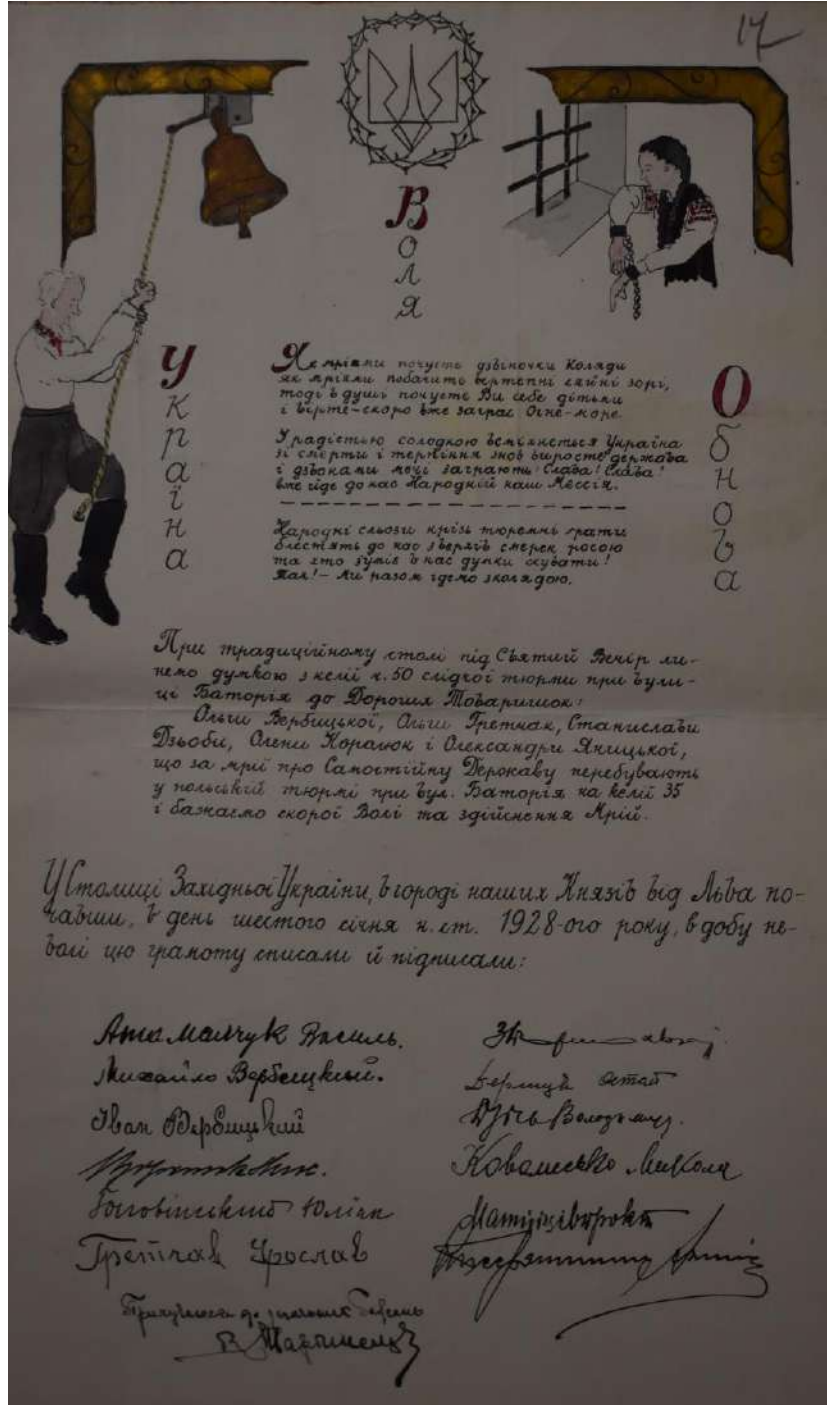 17
Воля
Україна
Обнова
Як мріями почуєте дзвіночки Коляди
як мріями побачите вертепні сяйні зорі,
тоді в душі почуєте Ви себе дітьми
і вірте – скоро вже заграє Огне-море.
У радістью солодкою всміхнеться Україна
зі смерти і терпіння знов виросте держава
і дзвонами мочі заграють: Слава! Слава!
вже йде до нас Народній наш Мессія.
Народні сльози крізь тюремні ґрати
блестять до нас з верхів смерек росою
та хто зумів в нас думки скувати!
Так! – Ми разом ідемо з колядою.
При традиційному столі під Святий Вечір ли-
немо думкою з келії ч. 50 слідчої тюрми при вули-
ці Баторія до Дорогих Товаришок:
Ольги Вербицької, Ольги Гретчак, Станислави
Дзьоби, Олени Коралюк і Олександри Яницької,
що за мрії про Самостійну Державу перебувають
у польській тюрмі при вул. Баторія на келії 35
і бажаємо скорої Волі та здійснення Мрій.
У Столиці Західньої України, в городі наших Князів від Льва по-
чавши, в день шестого січня н. ст. 1928-ого року, в добу не-
волі цю грамоту списали й підписали:
Атаманчук Василь.
Михайло Вербицький.
Вербицький
Іван Вербицький
Головінський Юліан
Ковалисько Микола
Гретчак Ярослав